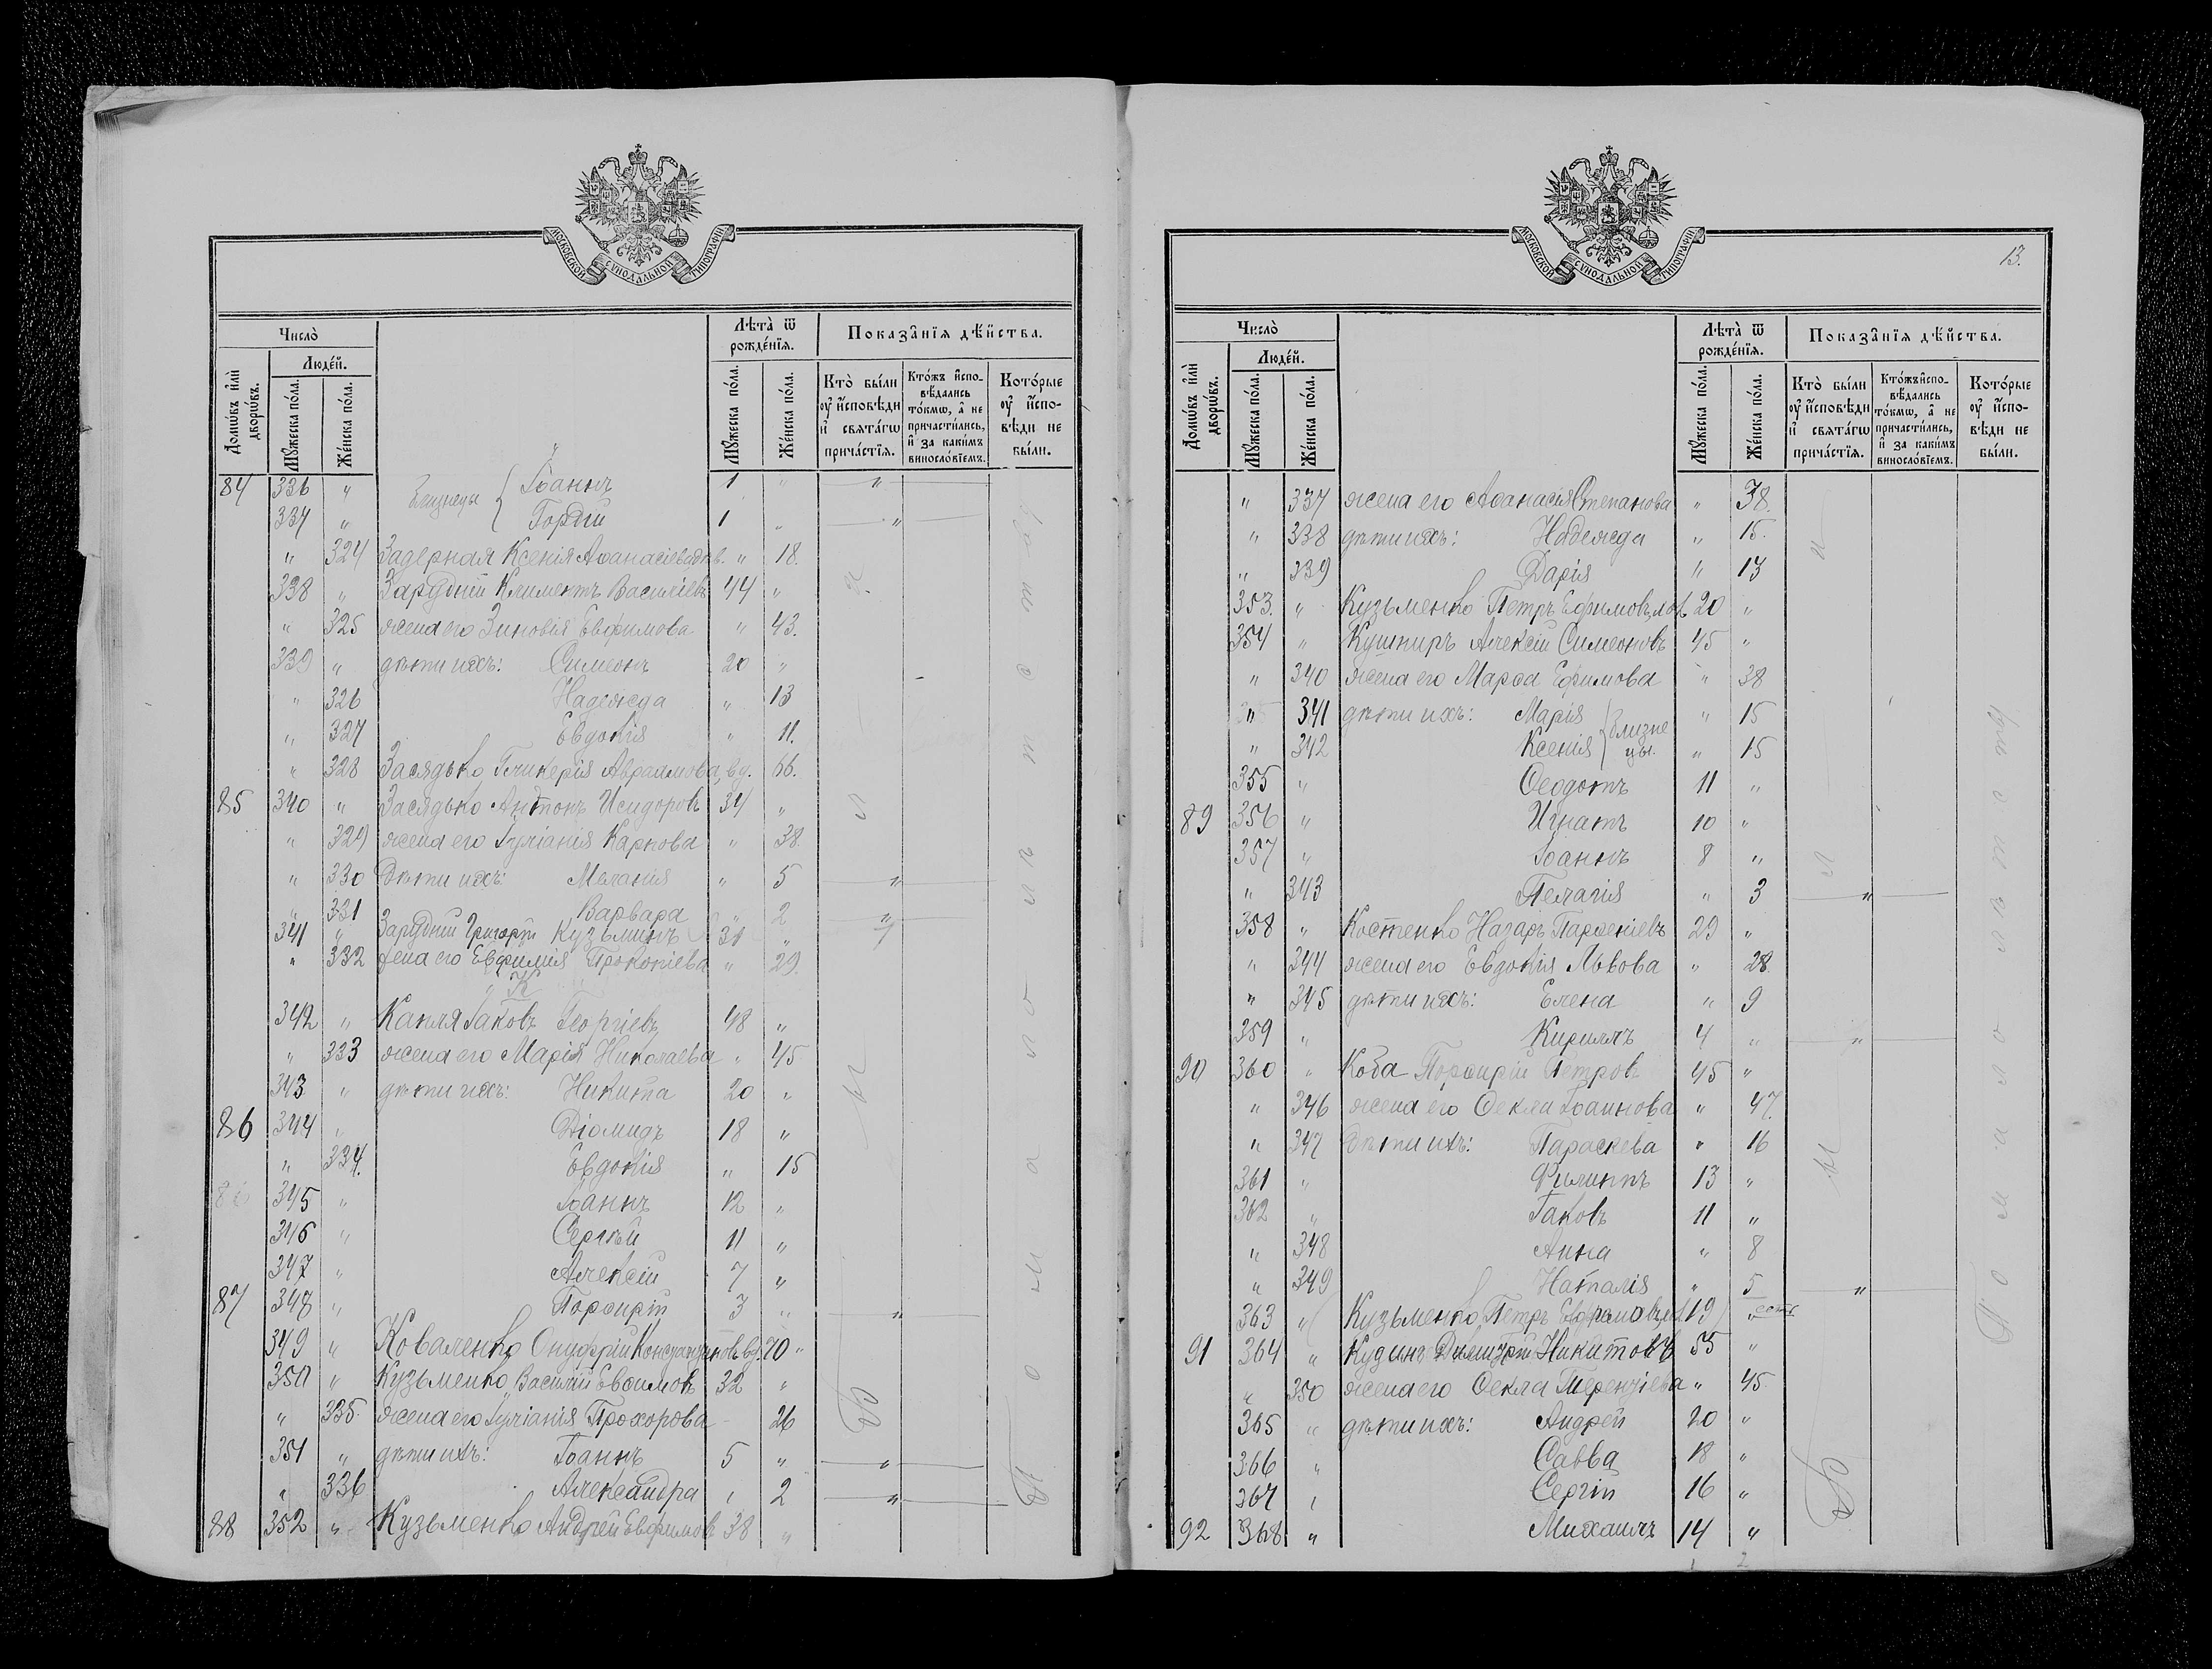 МОСКОВСКОЙ СѴНОДАЛЬНОЙ ТИПОГРАФІИ
Число̀
Лѣта̀ ѿ рожде́нїѧ.
Показа̑нїѧ дѣ́йства.
Домѡ́въ и҆лѝ дворѡ́въ.
Люде́й.
Мꙋ́жеска по́ла.
Же́нска по́ла.
Мꙋ́жеска по́ла.
Же́нска по́ла.
Кто̀ бы́ли ᲂу҆ и҆́сповѣди и҆ свѧта́гѡ прича́стїѧ.
Кто́жъ и҆спо-вѣ́дались то́кмѡ, а҆ не причасти́лись, и҆ за каки́мъ винослѡ́вїемъ.
Кото́рые ᲂу҆ и҆́спо-вѣди не бы́ли.
84 336 " Близнецы { Іоаннъ 1 " "
337 " Гордій 1 " "
" 324 Задерная Ксенія Аѳанасіева " 18.
338 " Зарудній Климентъ Василіевъ 44 "
" 325 жена его Зиновія Евфимова " 43.
339 " дѣти ихъ: Симеонъ 20 "
" 326 Надежда " 13
" 327 Евдокія " 11.
" 328 Засядько Гликерія Авраамова, вд. 66.
85 340 " Засядько Антонъ Исидоровъ 34 "
" 329 жена его Іуліанія Карпова " 38.
" 330 Дѣти ихъ: Меланія " 5 "
" 331 Варвара " 2 "
341 " Зарудній Григорій Кузьминъ 31 "
" 332 жена его Евфимія Прокопіева " 29.
К
342 " Капля Іаковъ Георгіевъ 48 "
" 333 жена его Марія Николаева " 45
343 " дѣти ихъ: Никита 20 "
86 344 " Діомидъ 18 "
" 334. Евдокія " 15
345 " Іоаннъ 12 "
346 " Сергѣй 11 "
347 " Алексій 7 "
87 348 " Порфирій 3 " "
349 " Коваленко Онуфрій Константиновъ вд. 70 "
350 " Кузьменко Василій Евфимовъ 32 "
" 335. жена его Іуліанія Прохорова 26
351 " дѣти ихъ: Іоаннъ 5 " "
" 336 Александра " 2 "
88 352 " Кузьменко Андрей Евфимовъ 38 "
МОСКОВСКОЙ СѴНОДАЛЬНОЙ ТИПОГРАФІИ
13.
Число̀
Лѣта̀ ѿ рожде́нїѧ.
Показа̑нїѧ дѣ́йства.
Домѡ́въ и҆лѝ дворѡ́въ.
Люде́й.
Мꙋ́жеска по́ла.
Же́нска по́ла.
Мꙋ́жеска по́ла.
Же́нска по́ла.
Кто̀ бы́ли ᲂу҆ и҆́сповѣди и҆ свѧта́гѡ прича́стїѧ.
Кто́жъ и҆спо-вѣ́дались то́кмѡ, а҆ не причасти́лись, и҆ за каки́мъ винослѡ́вїемъ.
Кото́рые ᲂу҆ и҆́спо-вѣди не бы́ли.
" 337 жена его Аѳанасія Степанова " 38.
" 338 дѣти ихъ: Надежда " 15.
" 339 Дарія " 13
353. " Кузьменко Петръ Ефимовъ 20 "
354 " Кушниръ Алексій Симеоновъ 45 "
" 340 жена его Марѳа Ефимова " 38
" 341 дѣти ихъ: Марія } близне " 15
" 342 Ксенія } цы. " 15
355 " Ѳеодотъ 11 "
89 356 " Игнатъ 10 "
357 " Іоаннъ 8 "
" 343 Пелагія " 3 "
358 " Костенко Назаръ Парѳеніевъ 29 "
" 344 жена его Евдокія Львова " 28.
" 345 дѣти ихъ: Елена " 9
359 " Кириллъ 4 " "
90 360 " Коба Порфирій Петровъ 45 "
" 346 жена его Ѳекла Іоаннова " 47.
" 347 Дѣти ихъ: Параскева " 16
361 " Филиппъ 13 "
362 " Іаковъ 11 "
" 348 Анна " 8
" 349 Наталія " 5 "
363 " ( Кузьменко Петръ Ефимовъ 19 ) "
91 364 " Кудинъ Димитрій Никитовъ 55 "
" 350 жена его Ѳекла Терентіева " 45.
365 " дѣти ихъ: Андрей 20 "
366 " Савва 18 "
367 " Сергій 16 "
92 368 " Михаилъ 14 "